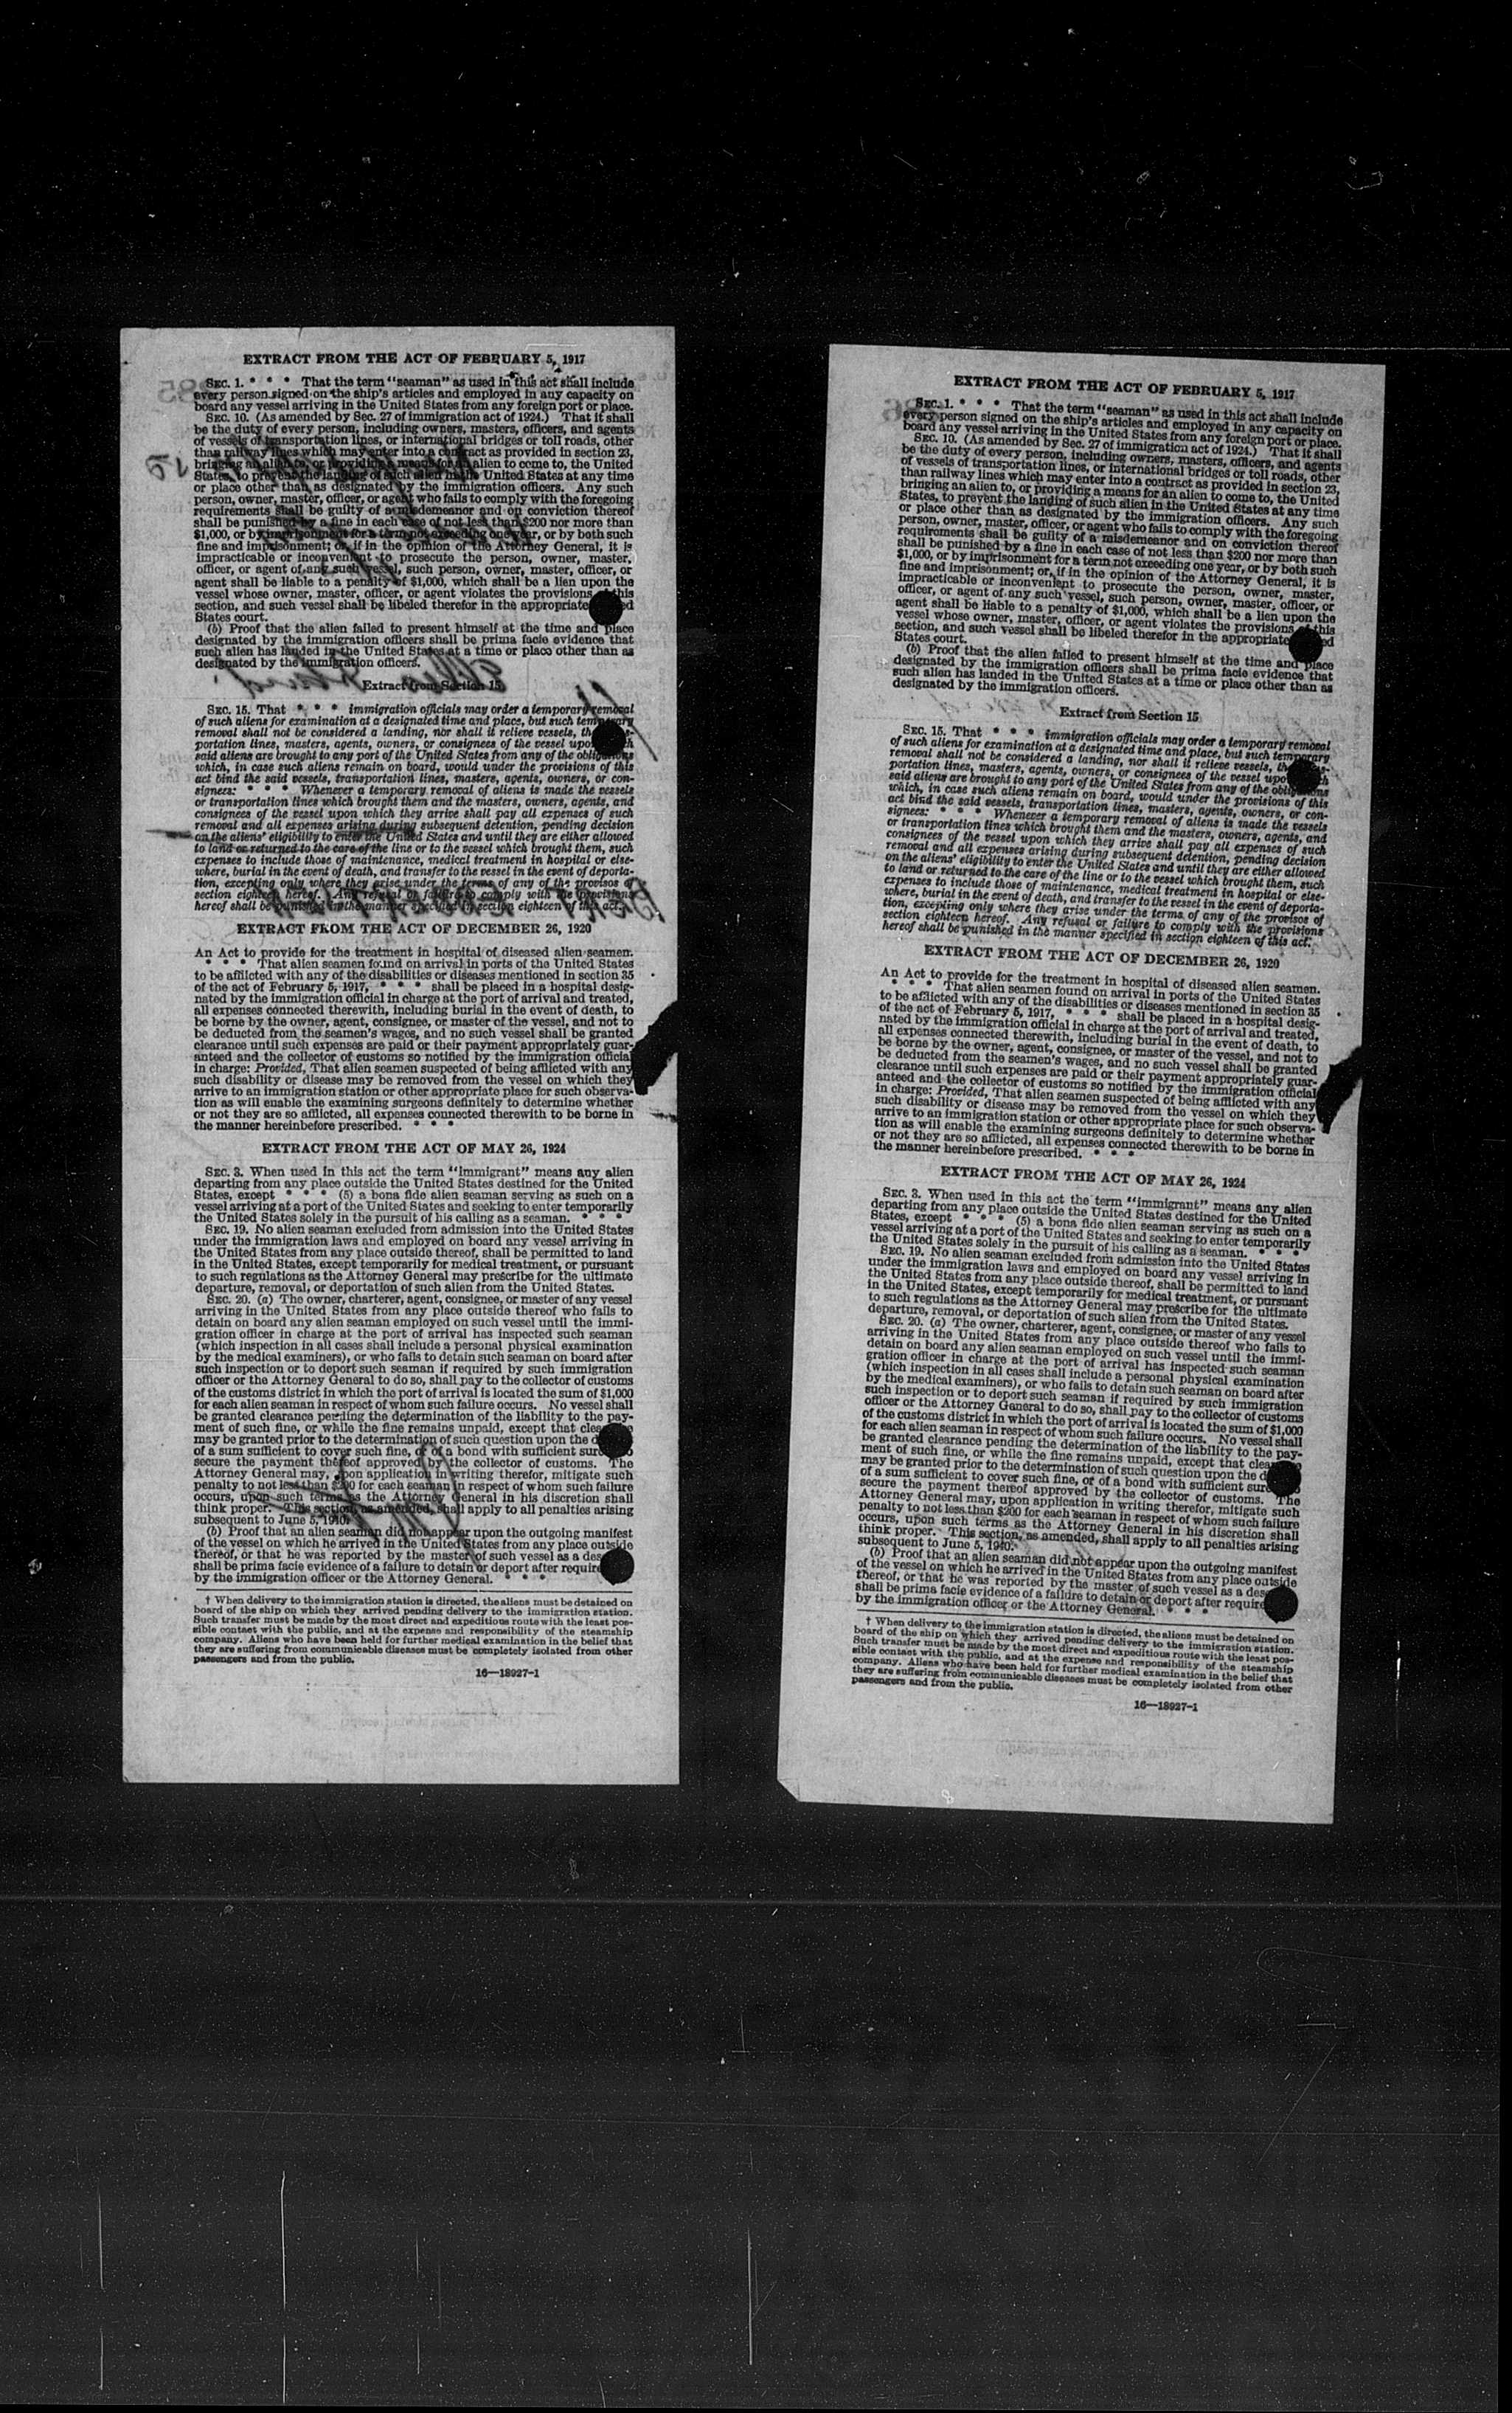 EXTRACT FROM THE ACT OF FEBRUARY 5, 1917
SEC. 1. * * * That the term "seaman" as used in this act shall include
every person signed on the ship's articles and employed in any capacity on
board any vessel arriving in the United States from any foreign port or place.
SEC. 10. (As amended by Sec. 27 of immigration act of 1924.) That it shall
be the duty of every person, including owners, masters, officers, and agents
of vessels of transportation lines, or international bridges or toll roads, other
than railway lines which may enter into a contract as provided in section 23,
bringing an alien to, or providing a means for an alien to come to, the United
States, to prevent the landing of such alien in the United States at any time
or place other than as designated by the immigration officers. Any such
person, owner, master, officer, or agent who fails to comply with the foregoing
requirements shall be guilty of a misdemeanor and on conviction thereof
shall be punished by a fine in each case of not less than $200 nor more than
$1,000, or by imprisonment for a term not exceeding one year, or by both such
fine and imprisonment; or, if in the opinion of the Attorney General, it is
impracticable or inconvenient to prosecute the person, owner, master,
officer, or agent of any such vessel, such person, owner, master, officer, or
agent shall be liable to a penalty of $1,000, which shall be a lien upon the
vessel whose owner, master, officer, or agent violates the provisions this
section, and such vessel shall be libeled therefor in the appropriate ed
States court.
(b) Proof that the alien failed to present himself at the time and place
designated by the immigration officers shall be prima facie evidence that
such alien has landed in the United States at a time or place other than as
designated by the immigration officers.
Extract from Section 15
SEC. 15. That * * * immigration officials may order a temporary removal
of such aliens for examination at a designated time and place, but such temporary
removal shall not be considered a landing, nor shall it relieve vessels, th s-
portation lines, masters, agents, owners, or consignees of the vessel upo ch
said aliens are brought to any port of the United States from any of the obligations
which, in case such aliens remain on board, would under the provisions of this
act bind the said vessels, transportation lines, masters, agents, owners, or con-
signees: * * * Whenever a temporary removal of aliens is made the vessels
or transportation lines which brought them and the masters, owners, agents, and
consignees of the vessel upon which they arrive shall pay all expenses of such
removal and all expenses arising during subsequent detention, pending decision
on the aliens' eligibility to enter the United States and until they are either allowed
to land or returned to the care of the line or to the vessel which brought them, such
expenses to include those of maintenance, medical treatment in hospital or else-
where, burial in the event of death, and transfer to the vessel in the event of deporta-
tion, excepting only where they arise under the terms of any of the provisos of
section eighteen hereof. Any refusal or failure to comply with the provisions
hereof shall be punished in the manner specified in section eighteen of this act.
EXTRACT FROM THE ACT OF DECEMBER 26, 1920
An Act to provide for the treatment in hospital of diseased alien seamen.
* * * That alien seamen found on arrival in ports of the United States
to be afflicted with any of the disabilities or diseases mentioned in section 35
of the act of February 5, 1917, * * * shall be placed in a hospital desig-
nated by the immigration official in charge at the port of arrival and treated,
all expenses connected therewith, including burial in the event of death, to
be borne by the owner, agent, consignee, or master of the vessel, and not to
be deducted from the seamen's wages, and no such vessel shall be granted
clearance until such expenses are paid or their payment appropriately guar-
anteed and the collector of customs so notified by the immigration official
in charge: Provided, That alien seamen suspected of being afflicted with any
such disability or disease may be removed from the vessel on which they
arrive to an immigration station or other appropriate place for such observa-
tion as will enable the examining surgeons definitely to determine whether
or not they are so afflicted, all expenses connected therewith to be borne in
the manner hereinbefore prescribed. * * *
EXTRACT FROM THE ACT OF MAY 26, 1924
SEC. 3. When used in this act the term "immigrant" means any alien
departing from any place outside the United States destined for the United
States, except * * * (5) a bona fide alien seaman serving as such on a
vessel arriving at a port of the United States and seeking to enter temporarily
the United States solely in the pursuit of his calling as a seaman. * * *
SEC. 19. No alien seaman excluded from admission into the United States
under the immigration laws and employed on board any vessel arriving in
the United States from any place outside thereof, shall be permitted to land
in the United States, except temporarily for medical treatment, or pursuant
to such regulations as the Attorney General may prescribe for the ultimate
departure, removal, or deportation of such alien from the United States.
SEC. 20. (a) The owner, charterer, agent, consignee, or master of any vessel
arriving in the United States from any place outside thereof who fails to
detain on board any alien seaman employed on such vessel until the immi-
gration officer in charge at the port of arrival has inspected such seaman
(which inspection in all cases shall include a personal physical examination
by the medical examiners), or who fails to detain such seaman on board after
such inspection or to deport such seaman if required by such immigration
officer or the Attorney General to do so, shall pay to the collector of customs
of the customs district in which the port of arrival is located the sum of $1,000
for each alien seaman in respect of whom such failure occurs. No vessel shall
be granted clearance pending the determination of the liability to the pay-
ment of such fine, or while the fine remains unpaid, except that clea
may be granted prior to the determination of such question upon the d
of a sum sufficient to cover such fine, or of a bond with sufficient sure o
secure the payment thereof approved by the collector of customs. The
Attorney General may, upon application in writing therefor, mitigate such
penalty to not less than $200 for each seaman in respect of whom such failure
occurs, upon such terms as the Attorney General in his discretion shall
think proper. This section, as amended, shall apply to all penalties arising
subsequent to June 5, 1940.
(b) Proof that an alien seaman did not appear upon the outgoing manifest
of the vessel on which he arrived in the United States from any place outside
thereof, or that he was reported by the master of such vessel as a des
shall be prima facie evidence of a failure to detain or deport after require
by the immigration officer or the Attorney General. * * *
† When delivery to the immigration station is directed, the aliens must be detained on
board of the ship on which they arrived pending delivery to the immigration station.
Such transfer must be made by the most direct and expeditious route with the least pos-
sible contact with the public, and at the expense and responsibility of the steamship
company. Aliens who have been held for further medical examination in the belief that
they are suffering from communicable diseases must be completely isolated from other
passengers and from the public.
16—18927-1
EXTRACT FROM THE ACT OF FEBRUARY 5, 1917
SEC. 1. * * * That the term "seaman" as used in this act shall include
every person signed on the ship's articles and employed in any capacity on
board any vessel arriving in the United States from any foreign port or place.
SEC. 10. (As amended by Sec. 27 of immigration act of 1924.) That it shall
be the duty of every person, including owners, masters, officers, and agents
of vessels of transportation lines, or international bridges or toll roads, other
than railway lines which may enter into a contract as provided in section 23,
bringing an alien to, or providing a means for an alien to come to, the United
States, to prevent the landing of such alien in the United States at any time
or place other than as designated by the immigration officers. Any such
person, owner, master, officer, or agent who fails to comply with the foregoing
requirements shall be guilty of a misdemeanor and on conviction thereof
shall be punished by a fine in each case of not less than $200 nor more than
$1,000, or by imprisonment for a term not exceeding one year, or by both such
fine and imprisonment; or, if in the opinion of the Attorney General, it is
impracticable or inconvenient to prosecute the person, owner, master,
officer, or agent of any such vessel, such person, owner, master, officer, or
agent shall be liable to a penalty of $1,000, which shall be a lien upon the
vessel whose owner, master, officer, or agent violates the provisions this
section, and such vessel shall be libeled therefor in the appropriate ed
States court.
(b) Proof that the alien failed to present himself at the time and place
designated by the immigration officers shall be prima facie evidence that
such alien has landed in the United States at a time or place other than as
designated by the immigration officers.
Extract from Section 15
SEC. 15. That * * * immigration officials may order a temporary removal
of such aliens for examination at a designated time and place, but such temporary
removal shall not be considered a landing, nor shall it relieve vessels, th s-
portation lines, masters, agents, owners, or consignees of the vessel upo ch
said aliens are brought to any port of the United States from any of the obligations
which, in case such aliens remain on board, would under the provisions of this
act bind the said vessels, transportation lines, masters, agents, owners, or con-
signees: * * * Whenever a temporary removal of aliens is made the vessels
or transportation lines which brought them and the masters, owners, agents, and
consignees of the vessel upon which they arrive shall pay all expenses of such
removal and all expenses arising during subsequent detention, pending decision
on the aliens' eligibility to enter the United States and until they are either allowed
to land or returned to the care of the line or to the vessel which brought them, such
expenses to include those of maintenance, medical treatment in hospital or else-
where, burial in the event of death, and transfer to the vessel in the event of deporta-
tion, excepting only where they arise under the terms of any of the provisos of
section eighteen hereof. Any refusal or failure to comply with the provisions
hereof shall be punished in the manner specified in section eighteen of this act.
EXTRACT FROM THE ACT OF DECEMBER 26, 1920
An Act to provide for the treatment in hospital of diseased alien seamen.
* * * That alien seamen found on arrival in ports of the United States
to be afflicted with any of the disabilities or diseases mentioned in section 35
of the act of February 5, 1917, * * * shall be placed in a hospital desig-
nated by the immigration official in charge at the port of arrival and treated,
all expenses connected therewith, including burial in the event of death, to
be borne by the owner, agent, consignee, or master of the vessel, and not to
be deducted from the seamen's wages, and no such vessel shall be granted
clearance until such expenses are paid or their payment appropriately guar-
anteed and the collector of customs so notified by the immigration official
in charge: Provided, That alien seamen suspected of being afflicted with any
such disability or disease may be removed from the vessel on which they
arrive to an immigration station or other appropriate place for such observa-
tion as will enable the examining surgeons definitely to determine whether
or not they are so afflicted, all expenses connected therewith to be borne in
the manner hereinbefore prescribed. * * *
EXTRACT FROM THE ACT OF MAY 26, 1924
SEC. 3. When used in this act the term "immigrant" means any alien
departing from any place outside the United States destined for the United
States, except * * * (5) a bona fide alien seaman serving as such on a
vessel arriving at a port of the United States and seeking to enter temporarily
the United States solely in the pursuit of his calling as a seaman. * * *
SEC. 19. No alien seaman excluded from admission into the United States
under the immigration laws and employed on board any vessel arriving in
the United States from any place outside thereof, shall be permitted to land
in the United States, except temporarily for medical treatment, or pursuant
to such regulations as the Attorney General may prescribe for the ultimate
departure, removal, or deportation of such alien from the United States.
SEC. 20. (a) The owner, charterer, agent, consignee, or master of any vessel
arriving in the United States from any place outside thereof who fails to
detain on board any alien seaman employed on such vessel until the immi-
gration officer in charge at the port of arrival has inspected such seaman
(which inspection in all cases shall include a personal physical examination
by the medical examiners), or who fails to detain such seaman on board after
such inspection or to deport such seaman if required by such immigration
officer or the Attorney General to do so, shall pay to the collector of customs
of the customs district in which the port of arrival is located the sum of $1,000
for each alien seaman in respect of whom such failure occurs. No vessel shall
be granted clearance pending the determination of the liability to the pay-
ment of such fine, or while the fine remains unpaid, except that clea
may be granted prior to the determination of such question upon the d
of a sum sufficient to cover such fine, or of a bond with sufficient sure
secure the payment thereof approved by the collector of customs. The
Attorney General may, upon application in writing therefor, mitigate such
penalty to not less than $200 for each seaman in respect of whom such failure
occurs, upon such terms as the Attorney General in his discretion shall
think proper. This section, as amended, shall apply to all penalties arising
subsequent to June 5, 1940.
(b) Proof that an alien seaman did not appear upon the outgoing manifest
of the vessel on which he arrived in the United States from any place outside
thereof, or that he was reported by the master of such vessel as a des
shall be prima facie evidence of a failure to detain or deport after require
by the immigration officer or the Attorney General. * * *
† When delivery to the immigration station is directed, the aliens must be detained on
board of the ship on which they arrived pending delivery to the immigration station.
Such transfer must be made by the most direct and expeditious route with the least pos-
sible contact with the public, and at the expense and responsibility of the steamship
company. Aliens who have been held for further medical examination in the belief that
they are suffering from communicable diseases must be completely isolated from other
passengers and from the public.
16—18927-1